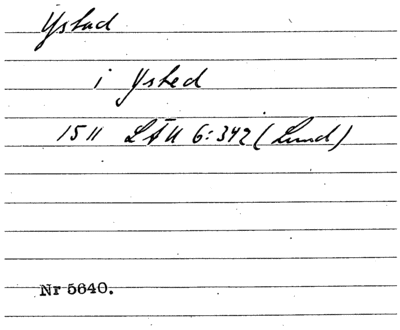 Ystad
i Ysted
1511 LÄU 6:342 (Lund)
Nr 5640.